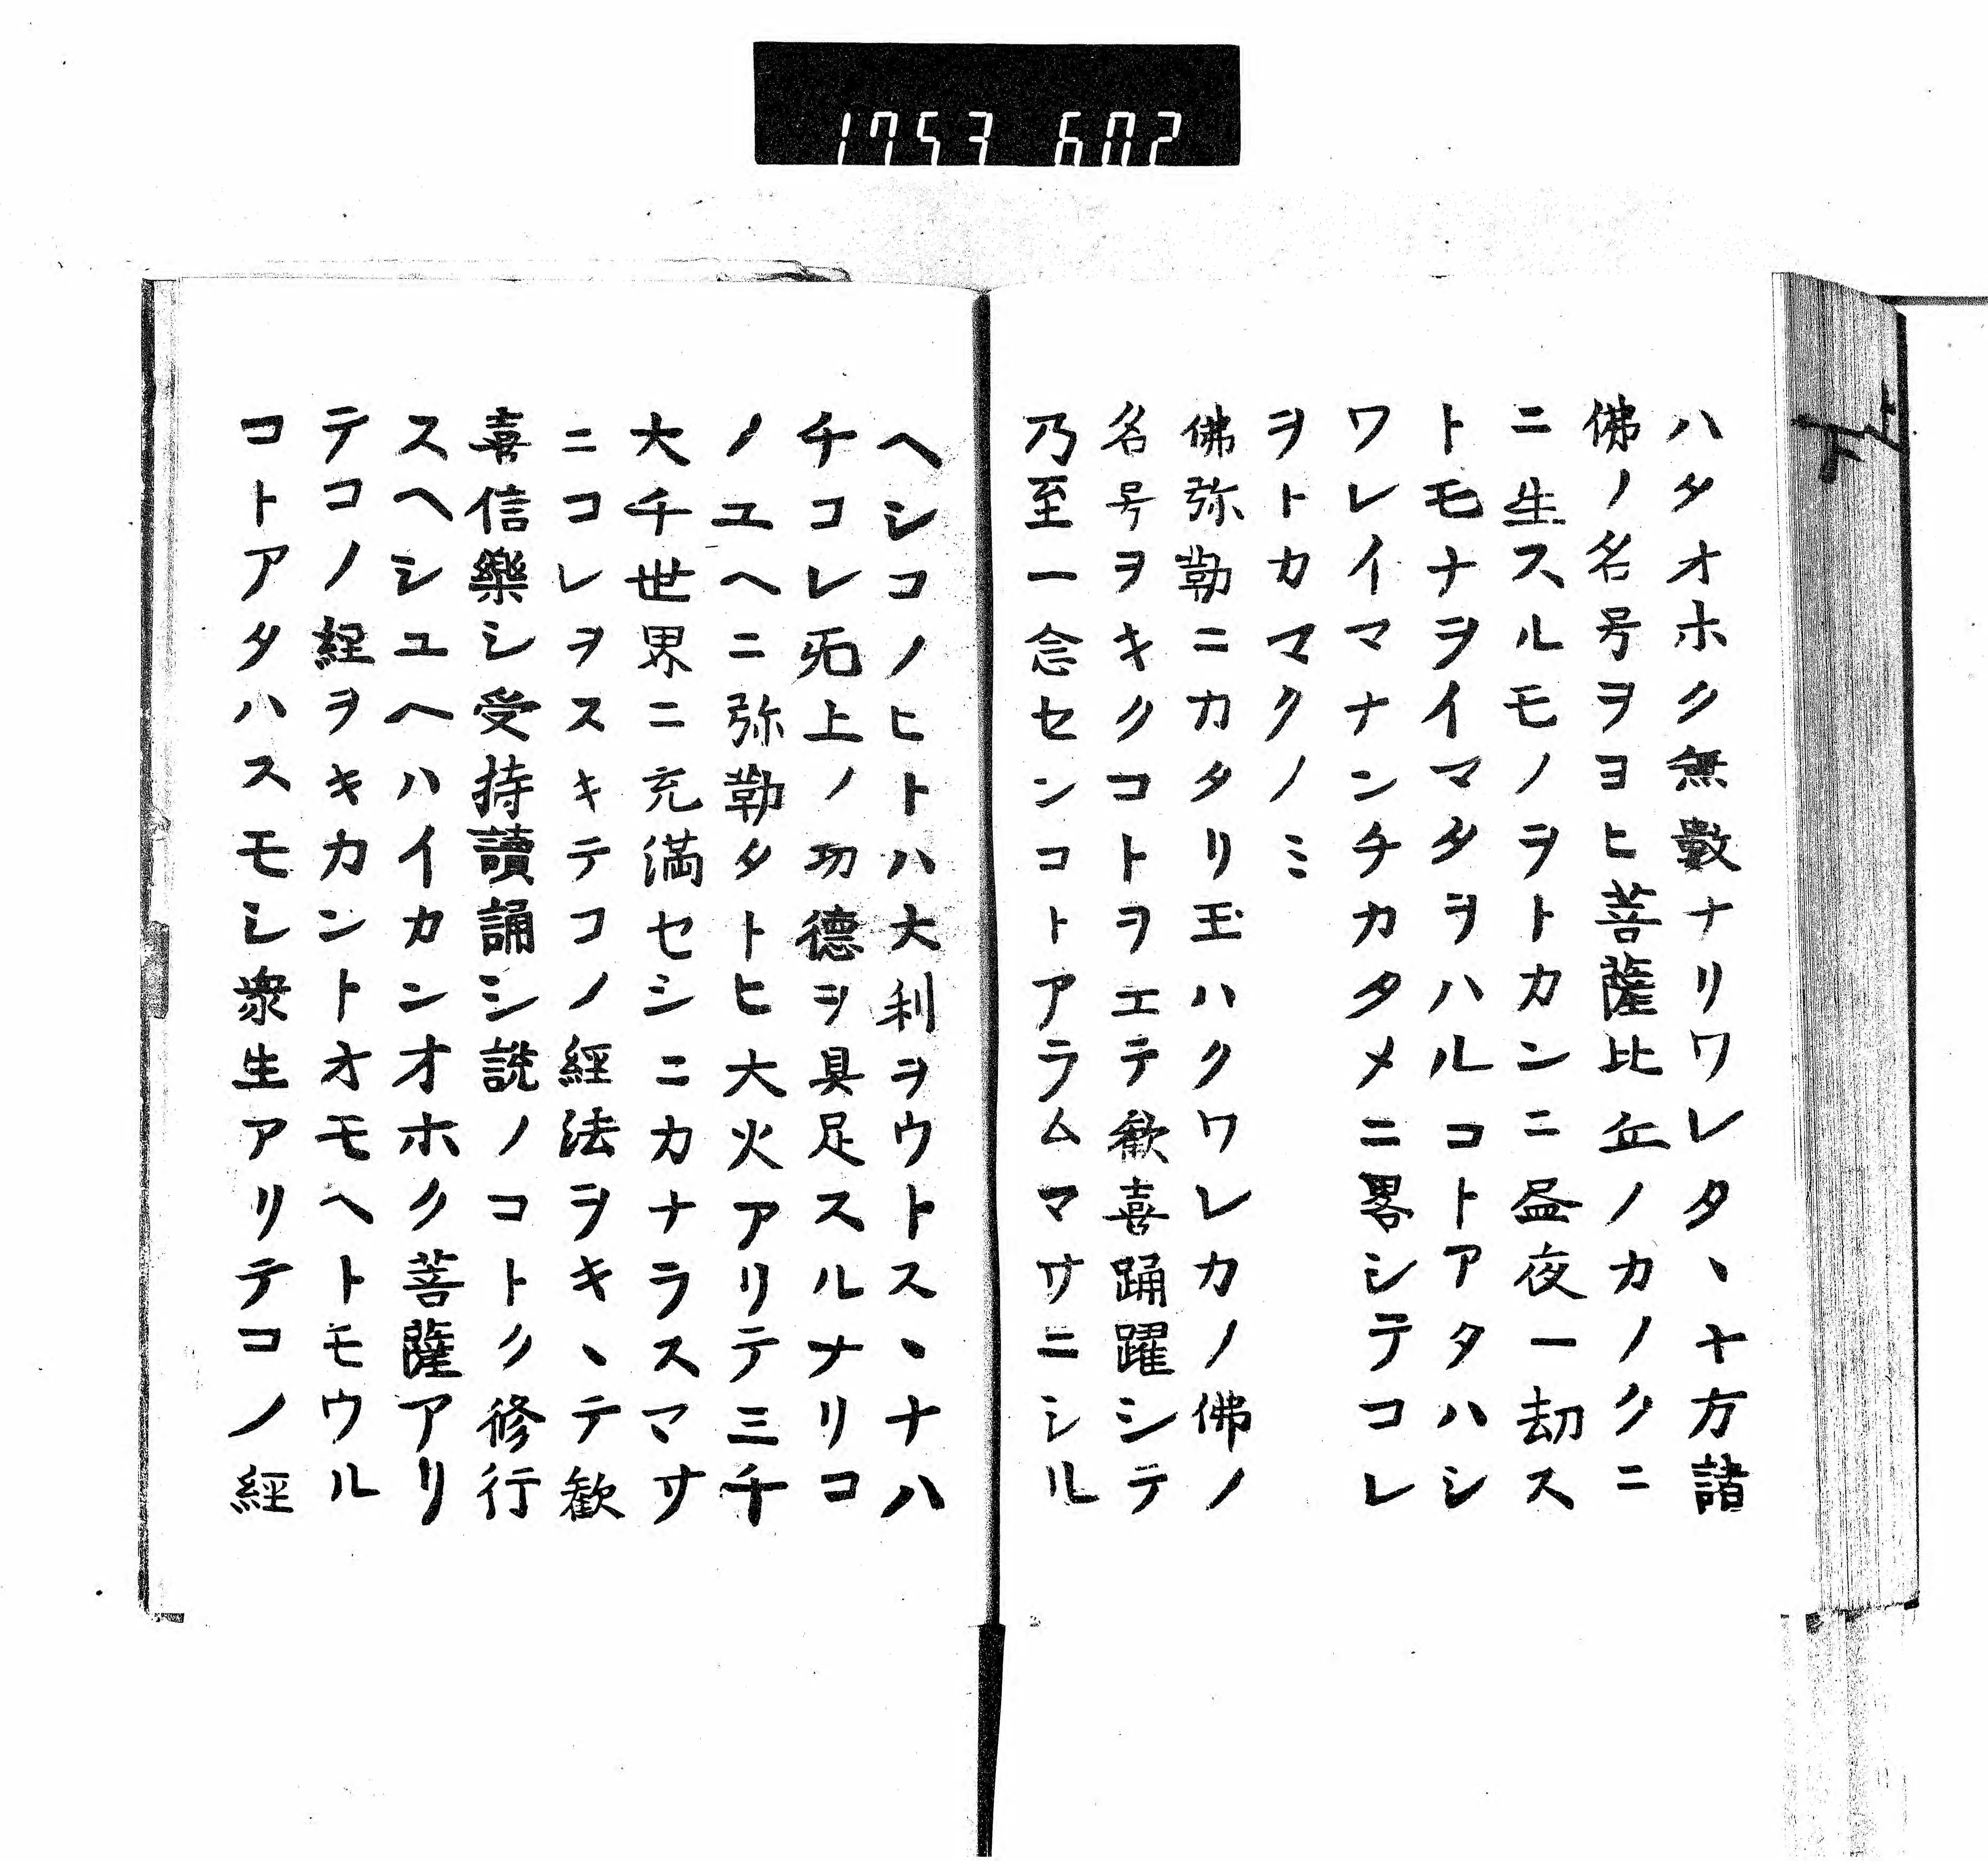 1753 602
ハタオホク無數ナリワレタヽ十方諸
佛ノ名号ヲヨヒ菩薩比丘ノカノクニ
ニ生スルモノヲトカンニ昼夜一劫ス
トモナヲイマタヲハルコトアタハシ
ワレイマナンチカタメニ畧シテコレ
ヲトカマクノミ
佛弥勒ニカタリ玉ハクワレカノ佛ノ
名号ヲキクコトヲエテ歓喜踊躍シテ
乃至一念センコトアラムマサニシル
ヘシコノヒトハ大利ヲウトスヽナハ
チコレ旡上ノ功德ヲ具足スルナリコ
ノユヘニ弥勒タトヒ大火アリテ三千
大千世界ニ充滿セシニカナラスマサ
ニコレヲスキテコノ經法ヲキヽテ歓
喜信樂シ受持讀誦シ説ノコトク修行
スヘシユヘハイカンオホク菩薩アリ
テコノ経ヲキカントオモヘトモウル
コトアタハスモし衆生アリテコノ經